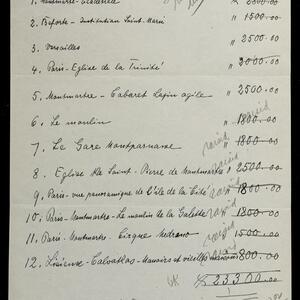 2. Beforte - Institution Saint-Marie " 1500.00
3. Versailles " 2500.00
4. Paris - Eglise de la Trinité " 3000.00
5. Montmartre - Cabaret Lapin agile " 2500.00
6. Le moulin " 1800.00
7. Le Gare Montparnasse " 1800.00
8. Eglise de Saint-Pierre de Montmartre " 2500.00
9. Paris - vue panoramique de l'île de la Cité " 1800.00
10. Paris - Montmartre - Le moulin de la Galette " 1800.00
11. Paris - Montmartre - Cirque Medrano " 1500.00
12. Lisieux - Calvados - Manoirs et vieilles maisons 800.00
23300.00